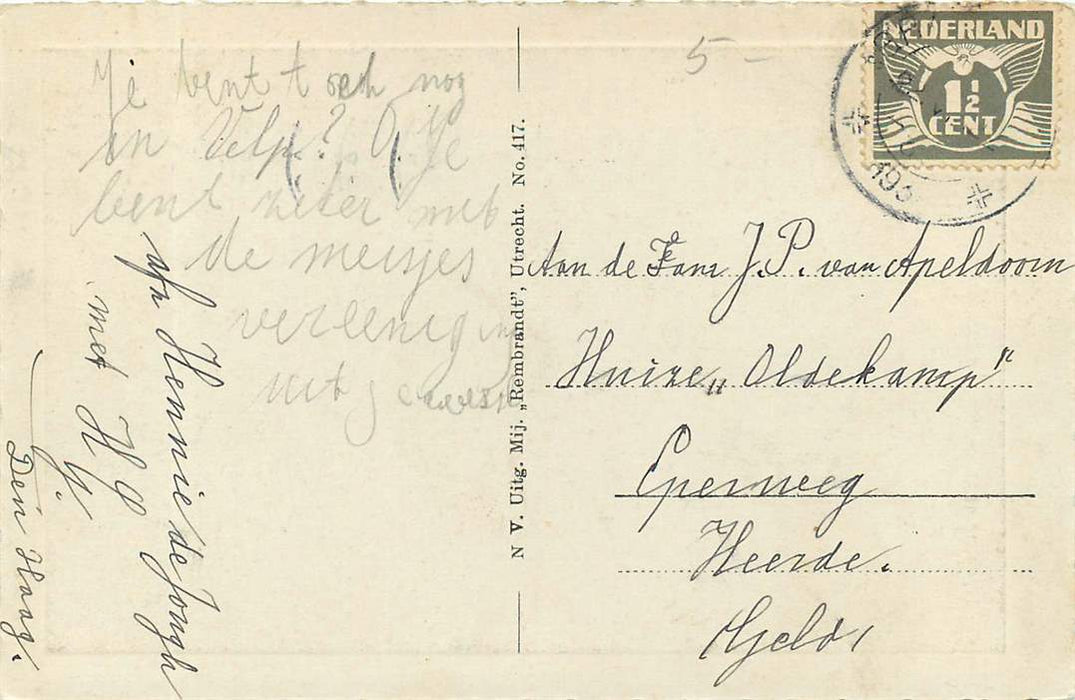 Je bent toch nog
in Velp? O Je
bent zeker met
de meisjes
vereeniging
uit geweest
5-
v/n Hennie de Jongh
met H G
Den Haag.
N V. Uitg. Mij. „Rembrandt”, Utrecht. No. 417.
NEDERLAND
1½
CENT
193
Aan de Fam J. P. van Apeldoorn
Huize „Oldekamp”
Eperweg
Heerde.
Geld,